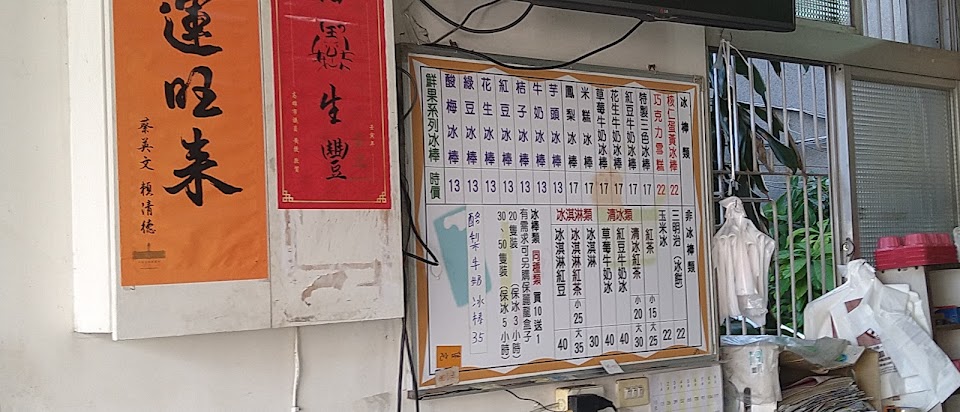 運旺来
蔡英文 賴清德
生豐
冰棒類
核仁蛋黃冰棒 22
巧克力雪糕 22
特製三色冰棒 17
紅豆牛奶冰棒 17
花生牛奶冰棒 17
草莓牛奶冰棒 17
米糕冰棒 17
鳳梨冰棒 17
芋頭冰棒 13
牛奶冰棒 13
桔子冰棒 13
紅豆冰棒 13
花生冰棒 13
綠豆冰棒 13
酸梅冰棒 13
鮮果系列冰棒 時價
非冰棒類
三明治(冰餅) 22
玉米冰 22
清冰類
紅茶 小15 大25
清冰紅茶 小20 大30
紅豆牛奶冰 40
草莓牛奶冰 40
冰淇淋類
冰淇淋 30
冰淇淋紅茶 小25 大35
冰淇淋紅豆 40
冰棒類 同種類 買10送1
有需求可另購保麗龍盒子
20隻裝(保冰3小時)
30、50隻裝(保冰5小時)
酪梨牛奶冰棒35